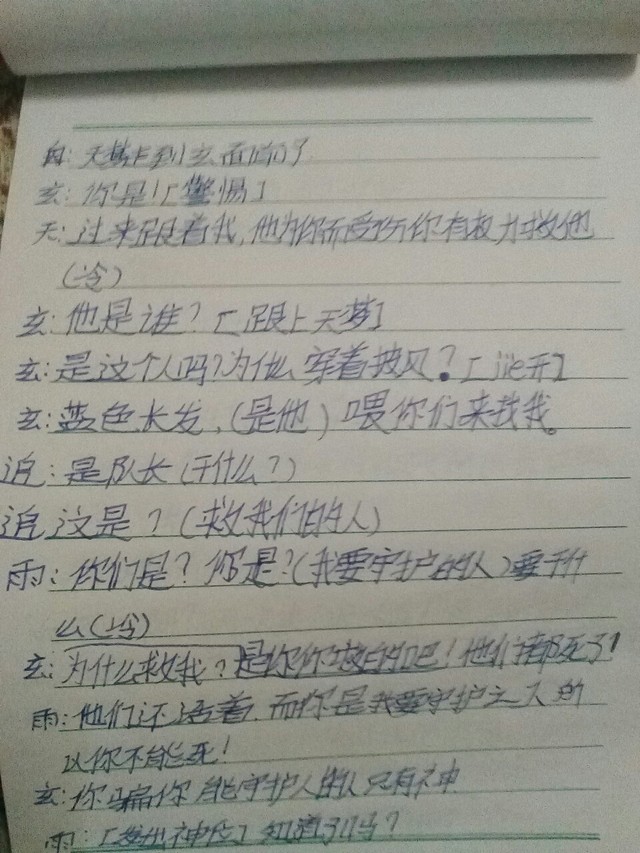 白：天梦卡到玄面前了
玄：你是！[警惕]
天：过来跟着我，他为你而受伤你有权力救他
（冷）
玄：他是谁？[跟上天梦]
玄：是这个人吗？为什么穿着披风？[jie开]
玄：蓝色长发，（是他）喂你们来找我。
追：是队长（干什么？）
追 这是？（救我们的人）
雨：你们是？你是？（我要守护的人）要干什
么（冷）
玄：为什么救我？是你你 的吧！他们都死了！
雨：他们还活着，而你是我要守护之人 所
以你不能死！
玄：你骗你 能守护人的 只有神
雨：[发出神 ] 知道了吗？